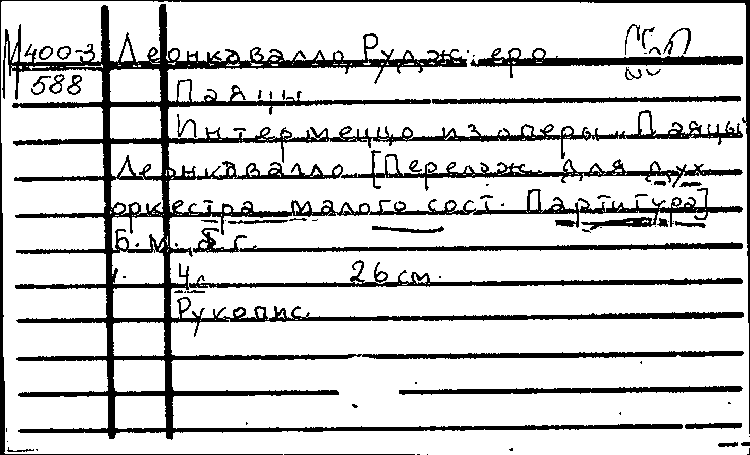 М 400-3 Леонкавалло, Руджеро
588 Паяцы
Интермеццо из оперы „Паяцы"
Леонкавалло [Перелож. для дух.
оркестра малого сост. Партитура]
Б.м., б.г.
4л 26 см.
Рукопис.